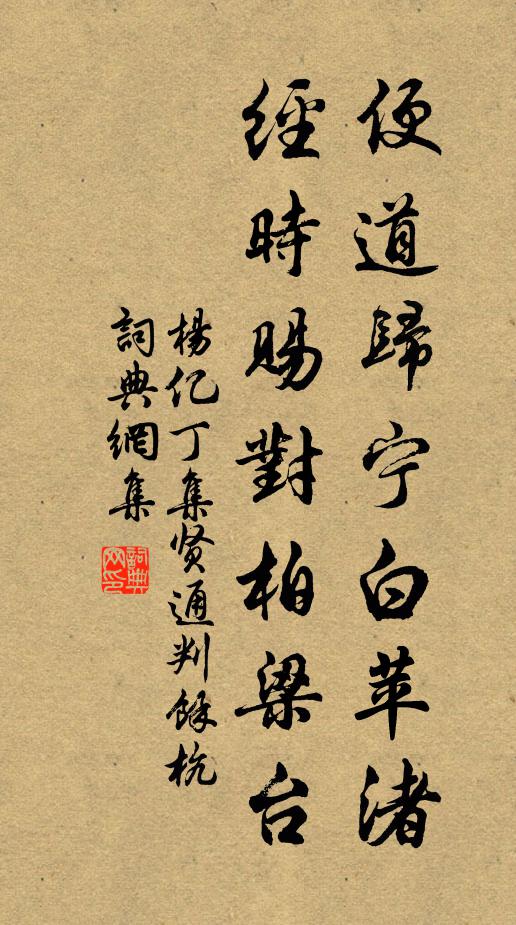 便道歸宁白苹渚
經時賜對柏梁台
楊亿丁集贤通判餘杭
詞典網集
詞典网印